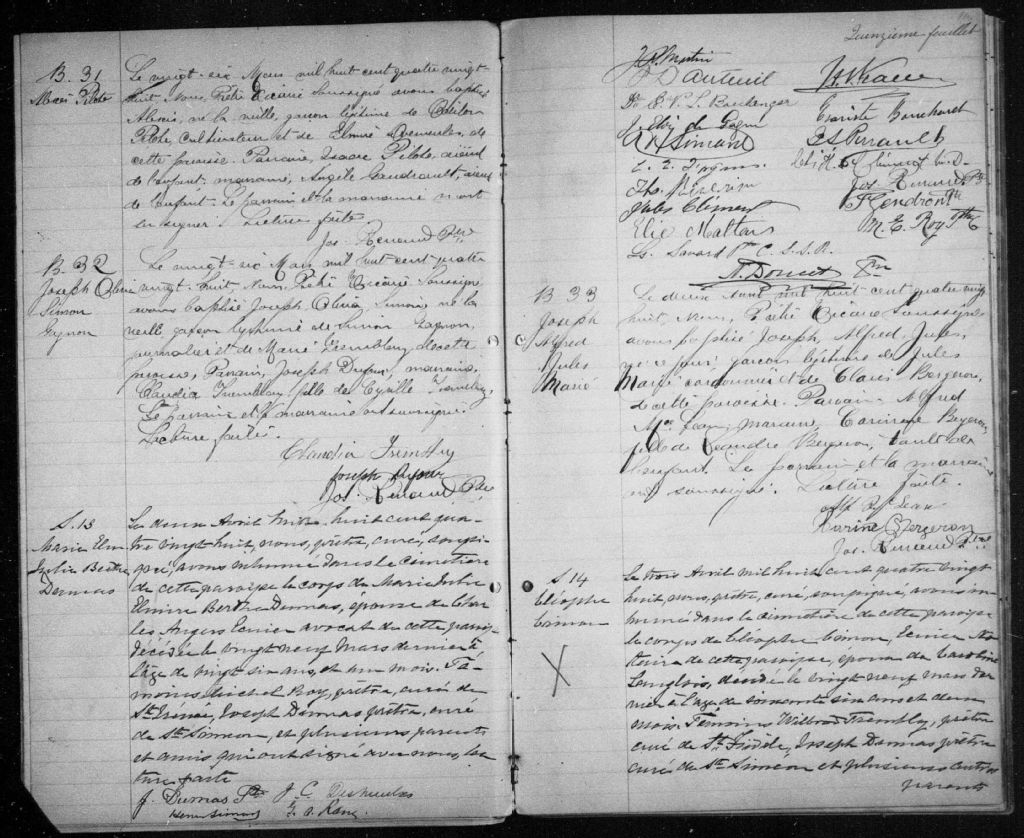 B. 31
Marie Pilote
Le vingt-six Mars mil huit cent quatre vingt
huit Nous Prêtre Vicaire Soussigné avons baptisé
Alexis, né la veille, garçon légitime de
Pilote, Cultivateur et de Elmire Desmeules, de
cette paroisse. Parrain, Isaac Pilote, aïeul
de l'enfant. marraine, Angèle Gaudrault, aïeule
de l'enfant. Le parrain et la marraine n'ont
su signer. Lecture faite.
Jos. Renaud Ptre
B. 32
Joseph
Simon
Gagnon
Le vingt-six Mars mil huit cent quatre
vingt-huit Nous Prêtre Vicaire Soussigné
avons baptisé Joseph, Simon, né la
veille, garçon légitime de Simon Gagnon,
journalier et de Marie Tremblay de cette
paroisse, Parrain, Joseph Dufour, marraine,
Claudia Tremblay fille de Cyrille Tremblay.
Le parrain et la marraine ont soussigné.
Lecture faite.
Claudia Tremblay
Joseph Dufour
Jos. Renaud Ptre
S. 13
Marie Elm
Julie Berthe
Dumas
Le deux Avril mil huit cent qua-
tre vingt huit, nous, prêtre, curé, soussi-
gné, avons inhumé dans le cimetière
de cette paroisse le corps de Marie Julie
Elmire Berthe Dumas, épouse de Char
les Angers Ecuier avocat de cette paroisse
décédée le vingt neuf Mars dernier à
l'âge de vingt six ans, et un mois. Té-
moins, Michel Roy, prêtre, curé de
St Irénée, Joseph Dumas prêtre, curé
de St Siméon, et plusieurs parents
et amis qui ont signé avec nous, lec
ture faite
J. Dumas Ptre J. C. Desmeules
Henri Simard
Quinzième feuillet
Martin
D'auteuil
E. P. L. Boulanger
Evariste Bouchard
Simard
Perrault
Clément
Jos. Renaud Ptre
Jules Clément
Gendron Ptre
Elie Maltais
M. E. Roy Ptre
Ls. Savard
N. Doucet Ptre
B 33
Joseph
Alfred
Jules
Marié
Le deux Avril mil huit cent quatre vingt
huit, Nous, Prêtre Vicaire Soussigné
avons baptisé Joseph, Alfred, Jules,
né ce jour, garçon légitime de Jules
Marié cordonnier et de Claris Bergeron,
de cette paroisse. Parrain Alfred
McLean, marraine, Corinne Bergeron,
fille de Léandre Bergeron, tante de
l'enfant. Le parrain et la marraine
ont soussigné. Lecture faite.
Alf McLean
Corine Bergeron
Jos. Renaud Ptre
S 14
Cléophe
Cimon
X
Le trois Avril mil huit cent quatre vingt
huit, nous, prêtre, curé, soussigné, avons in
humé dans le cimetière de cette paroisse
le corps de Cléophe Cimon, Ecuier No
taire de cette paroisse, époux de Caroline
Langlois, décédé le vingt neuf mars der
nier à l'âge de soixante six ans et deux
mois. Témoins Wilbrod Tremblay, prêtre
curé de St Fidèle, Joseph Dumas prêtre
curé de St Siméon et plusieurs autres
parents